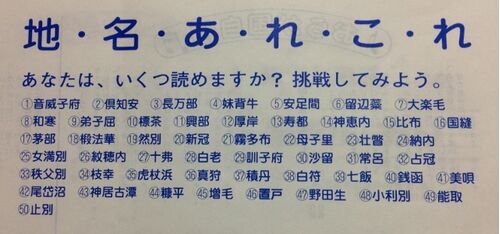 地・名・あ・れ・こ・れ
あなたは、いくつ読めますか？挑戦してみよう。
①音威子府 ②倶知安 ③長万部 ④妹背牛 ⑤安足間 ⑥留辺蘂 ⑦大楽毛
⑧和寒 ⑨弟子屈 ⑩標茶 ⑪興部 ⑫厚岸 ⑬寿都 ⑭神恵内 ⑮比布 ⑯国縫
⑰茅部 ⑱椴法華 ⑲然別 ⑳新冠 ㉑霧多布 ㉒母子里 ㉓壮瞥 ㉔納内
㉕女満別 ㉖紋穂内 ㉗十弗 ㉘白老 ㉙訓子府 ㉚沙留 ㉛常呂 ㉜占冠
㉝秩父別 ㉞枝幸 ㉟虎杖浜 ㊱真狩 ㊲積丹 ㊳白符 ㊴七飯 ㊵銭函 ㊶美唄
㊷尾岱沼 ㊸神居古潭 ㊹糠平 ㊺増毛 ㊻置戸 ㊼野田生 ㊽小利別 ㊾能取
㊿止別